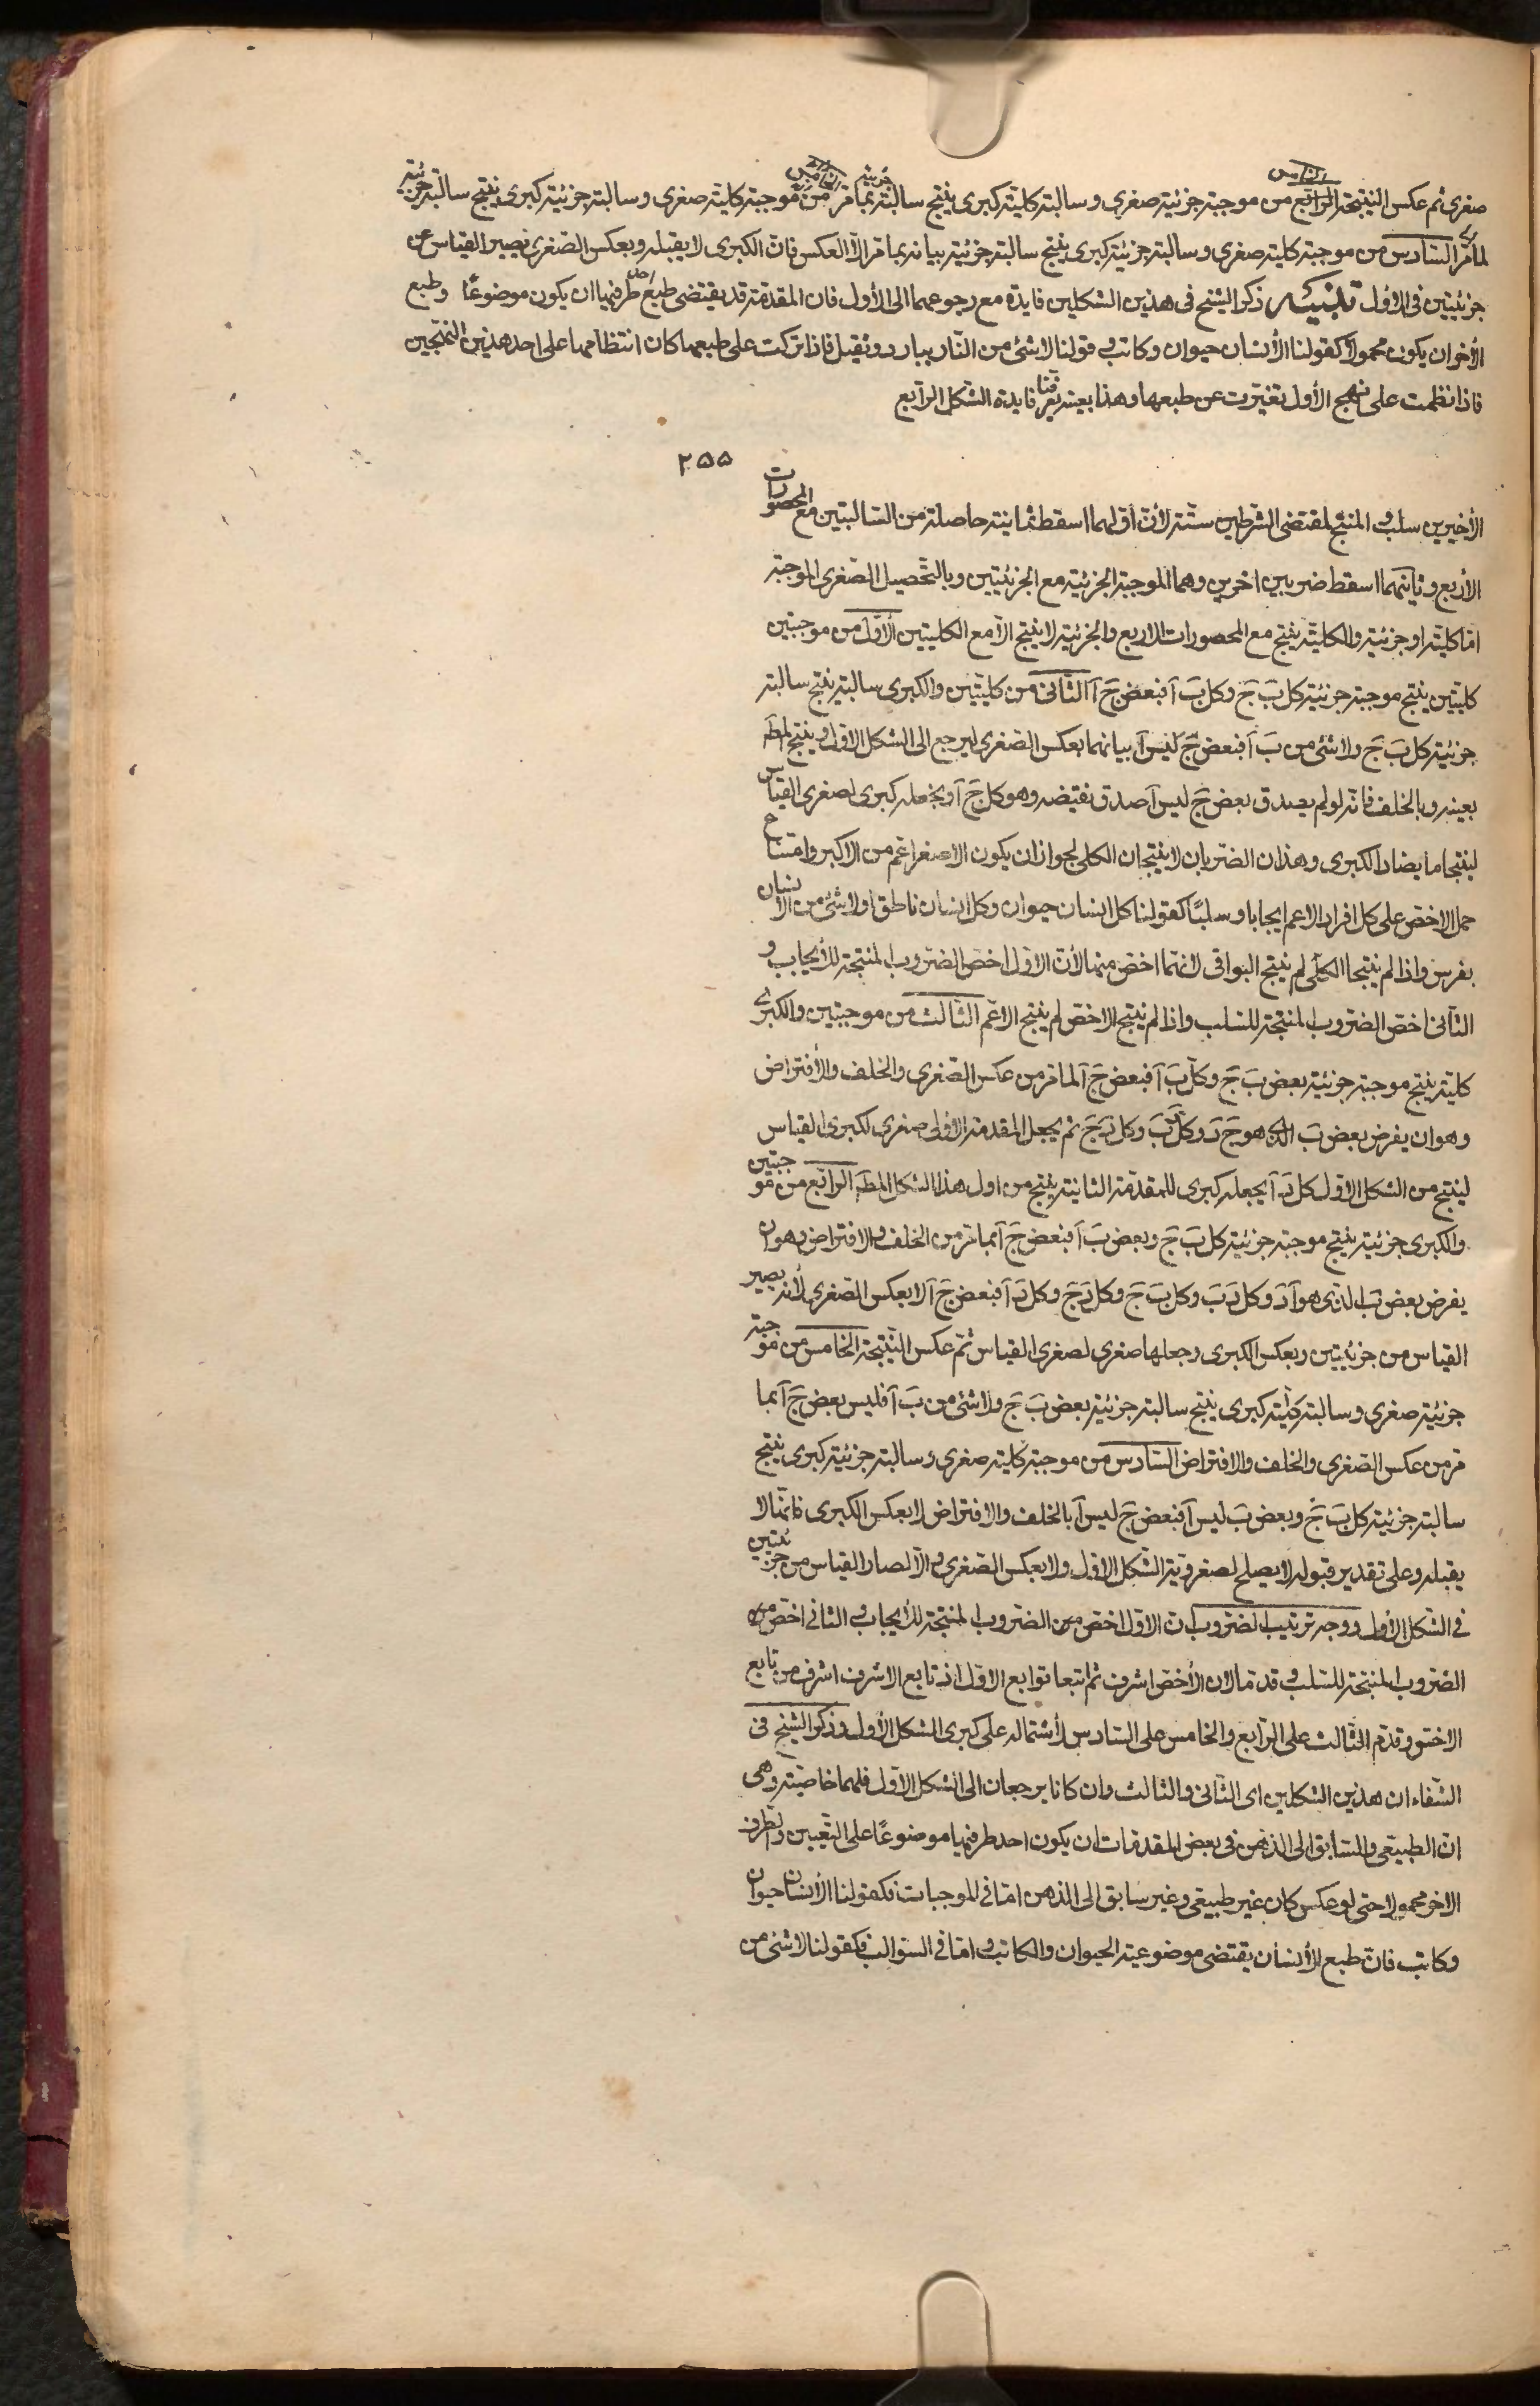 صغرى ثم عكس النتيجة الرابع من موجبة جزئية صغرى وسالبة كلية كبرى ينتج سالبة جزئية بما مر الخامس من موجبة كلية صغرى وسالبة جزئية كبرى ينتج سالبة جزئية
لما مر السادس من موجبة كلية صغرى وسالبة جزئية كبرى ينتج سالبة جزئية بيانه بما مر الا العكس فان الكبرى لا يقبله وبعكس الصغرى يصير القياس عن
جزئيتين فى الاول تنبيه ذكر الشيخ فى هذين الشكلين فايدة مع رجوعهما الى الأول فان المقدمة قد يقتضى طبع احد طرفيها ان يكون موضوعًا وطبع
الأخر ان يكون محمولًا كقولنا الأنسان حيوان وكاتب و قولنا لا شئ من النار ببارد وثقيل فاذا تركت على طبعهما كان انتظامهما على احد هذين النهجين
فاذا نظمت على نهج الأول تغيرت عن طبعها وهذا بعينه يعرفنا فايدة الشكل الرابع
٢٥٥
الأخيرين سلب و المنتج بمقتضى الشرطين ستة لأن اولهما اسقط ثمانية حاصلة من السالبتين مع المحصورات
الأربع وثانيهما اسقط ضربين اخرين وهما الموجبة الجزئية مع الجزئيتين وبالتحصيل الصغرى الموجبة
اما كلية او جزئية والكلية ينتج مع المحصورات الاربع والجزئية لا ينتج الا مع الكليتين الأول من موجبتين
كليتين ينتج موجبة جزئية كل بَ جَ وكل بَ آ فبعض جَ آ الثانى من كليتين والكبرى سالبة ينتج سالبة
جزئية كل بَ جَ ولا شئ من بَ آ فبعض جَ ليس آ بيانهما بعكس الصغرى ليرجع الى الشكل الاول وينتج المط
بعينه وبالخلف فانه لو لم يصدق بعض جَ ليس آ صدق نقيضه وهو كل جَ آ ويجعله كبرى لصغرى القياس
لينتجا ما يضاد الكبرى وهذان الضربان لا ينتجان الكلى لجواز ان يكون الاصغر اعم من الاكبر وامتناع
حمل الاخص على كل افراد الاعم ايجابا و سلبًا كقولنا كل انسان حيوان وكل انسان ناطق او لا شئ من الانسان
بفرس واذا لم ينتجا الكلى لم ينتج البواقى لانهما اخص منها لأن الاول اخص الضروب المنتجة للأيجاب و
الثانى اخص الضروب المنتجة للسلب واذا لم ينتج الاخص لم ينتج الاعم الثالث من موجبتين والكبرى
كلية ينتج موجبة جزئية بعض بَ جَ وكل بَ آ فبعض جَ آ لما مر من عكس الصغرى والخلف والأفتراض
وهو ان يفرض بعض بَ الذى هو جَ دَ وكل دَ بَ وكل دَ جَ ثم يجعل المقدمة الاولى صغرى لكبرى القياس
لينتج من الشكل الاول كل دَ آ يجعله كبرى للمقدمة الثانية ينتج من اول هذا الشكل المط الرابع من موجبتين
والكبرى جزئية ينتج موجبة جزئية كل بَ جَ وبعض بَ آ فبعض جَ آ بما مر من الخلف والافتراض وهو ان
يفرض بعض بَ الذى هو آ دَ وكل دَ بَ وكل بَ جَ وكل دَ جَ وكل دَ آ فبعض جَ آ لا بعكس الصغرى لأنه يصير
القياس من جزئيتين وبعكس الكبرى وجعلها صغرى لصغرى القياس ثم عكس النتيجة الخامس من موجبة
جزئية صغرى وسالبة كلية كبرى ينتج سالبة جزئية بعض بَ جَ ولا شئ من بَ آ فليس بعض جَ آ بما
مر من عكس الصغرى والخلف والافتراض السادس من موجبة كلية صغرى وسالبة جزئية كبرى ينتج
سالبة جزئية كل بَ جَ وبعض بَ ليس آ فبعض جَ ليس آ بالخلف والافتراض لا بعكس الكبرى فانها لا
يقبله وعلى تقدير قبوله لا يصلح لصغروية الشكل الاول ولا بعكس الصغرى والا لصار القياس من جزئيتين
فى الشكل الأول ووجه ترتيب الضروب ان الاول اخص من الضروب المنتجة للأيجاب و الثانى اخص من
الضروب المنتجة للسلب وقدما لان الأخص اشرف ثم اتبعا توابع الاول اذ تابع الاشرف اشرف من تابع
الاخس وقدم الثالث على الرابع والخامس على السادس لأشتماله على كبرى الشكل الأول وذكر الشيخ فى
الشفاء ان هذين الشكلين اى الثانى والثالث وان كانا يرجعان الى الشكل الاول فلهما خاصية وهى
ان الطبيعى والسابق الى الذهن فى بعض المقدمات ان يكون احد طرفيها موضوعًا على التعيين والطرف
الاخر محمولا حتى لو عكس كان غير طبيعى وغير سابق الى الذهن اما فى الموجبات فكقولنا الأنسان حيوان
وكاتب فان طبع الأنسان يقتضى موضوعية الحيوان والكاتب و اما فى السوالب فكقولنا لا شئ من